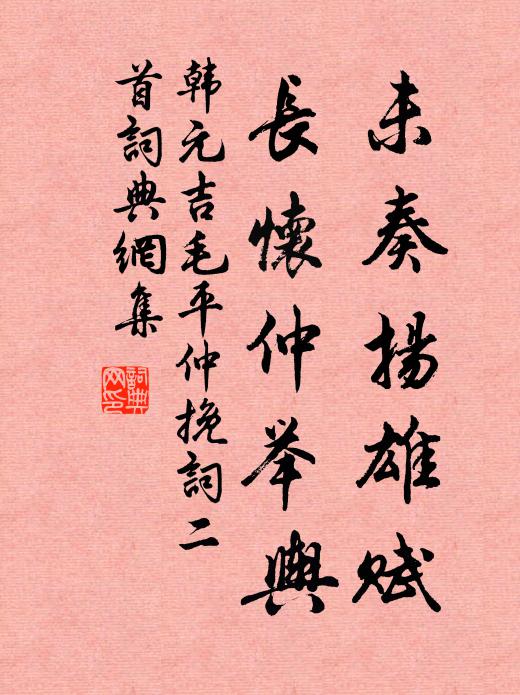 未奏揚雄赋
長懷仲举輿
韩元吉毛平仲挽詞二
首詞典網集
詞典
网印